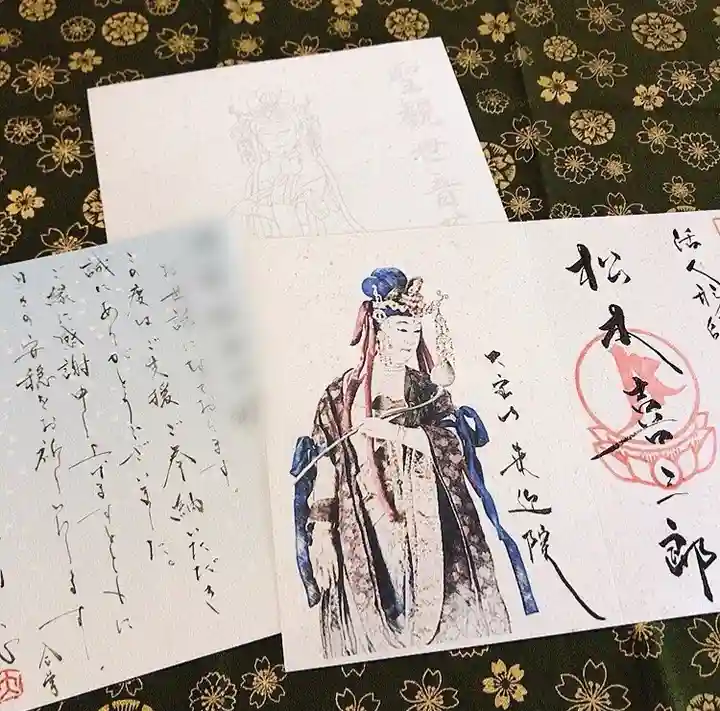 聖観世音
活人形師
松本喜三郎
大宝山 来迎院
お世話になっております。
この度はご支援ご奉納いただき
誠にありがとうございました。
ご縁に感謝申し上げますとともに、
日々の安穏をお祈りいたします
合掌